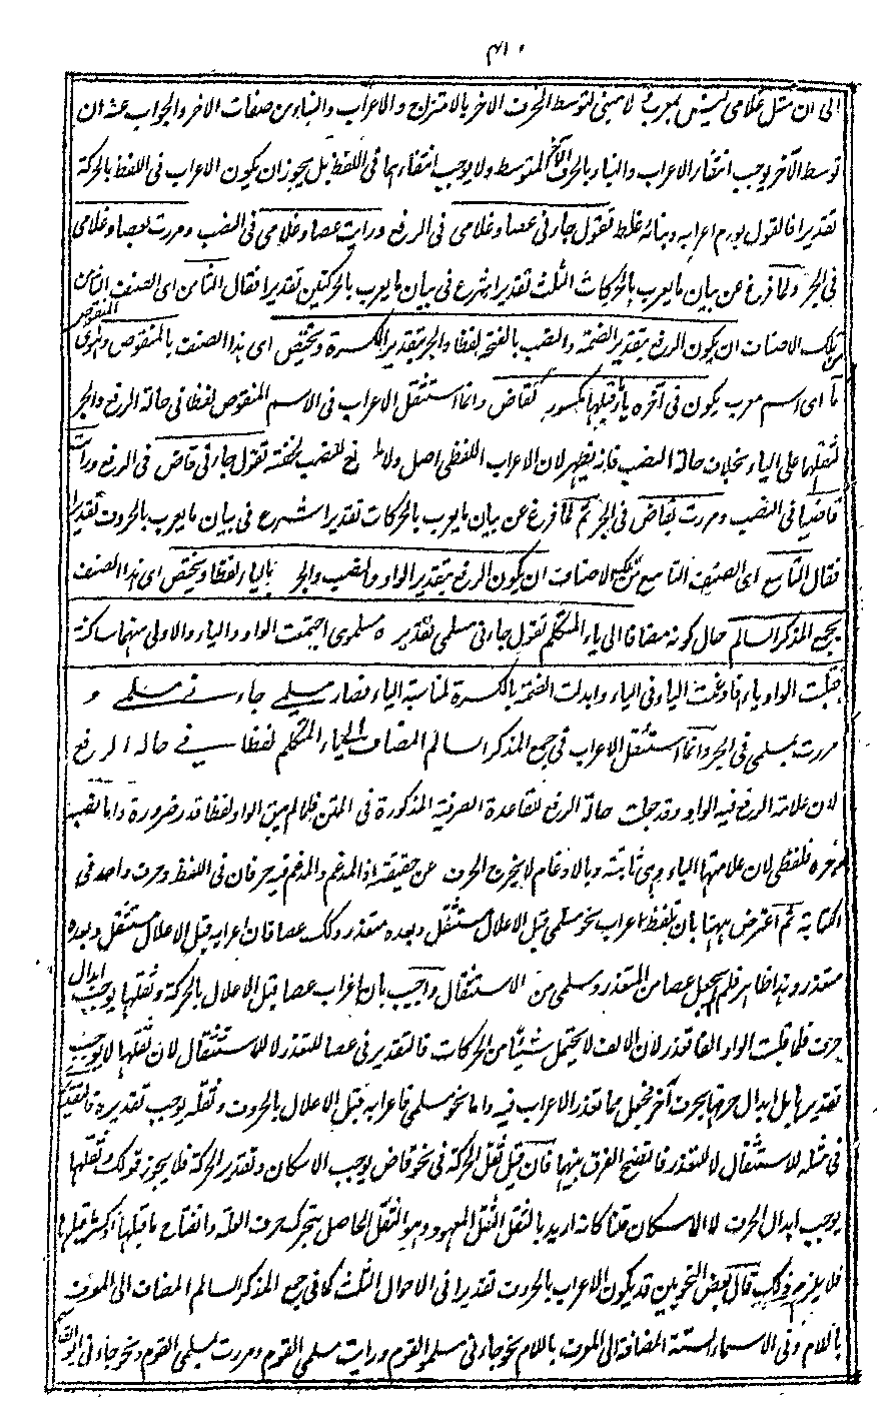 ۴۱۰
الى ان مثل غلامى ليس بمعرب ولا مبنى لتوسط الحرف الاخر بالامتزاج والاعراب والبناء من صفات الاخر والجواب عنه ان
توسط الآخر يوجب انتفاء الاعراب والبناء بالحرف الآخر المتوسط ولا يوجب انتفاءهما فى اللفظ بل يجوز ان يكون الاعراب فى اللفظ بالحركة
تقديرا فالقول بعدم اعرابه وبنائه غلط تقول جاءنى عصا وغلامى فى الرفع ورأيت عصا وغلامى فى النصب ومررت بعصا وغلامى
فى الجر ولما فرغ عن بيان ما يعرب بالحركات الثلث تقديرا شرع فى بيان ما يعرب بالحركتين تقديرا فقال الثامن اى الصنف الثامن
من تلك الاصناف ان يكون الرفع بتقدير الضمة والنصب بالفتحة لفظا والجر بتقدير الكسرة ويختص اى هذا الصنف بالمنقوص وهو اى المنقوص
ما اى اسم معرب يكون فى آخره ياء ما قبلها مكسور كقاض وانما استثقل الاعراب فى الاسم المنقوص لفظا فى حالة الرفع والجر
لثقلها على الياء بخلاف حالة النصب فانه يظهر لان الاعراب اللفظى اصل ولا مانع للنصب لخفته تقول جاءنى قاض فى الرفع ورأيت
قاضيا فى النصب ومررت بقاض فى الجر ثم لما فرغ عن بيان ما يعرب بالحركات تقديرا شرع فى بيان ما يعرب بالحروف تقديرا
فقال التاسع اى الصنف التاسع من تلك الاصناف ان يكون الرفع بتقدير الواو والنصب والجر بالياء لفظا ويختص اى هذا الصنف
بجمع المذكر السالم حال كونه مضافا الى ياء المتكلم تقول جاءنى مسلمى تقديره مسلموى اجتمعت الواو والياء والاولى منهما ساكنة
فقلبت الواو ياء فادغمت الياء فى الياء وابدلت الضمة بالكسرة لمناسبة الياء فصار مسلمى جاءنى مسلمى و
مررت بمسلمى فى الجر وانما استثقل الاعراب فى جمع المذكر السالم المضاف الى ياء المتكلم لفظا فى حالة الرفع
لان علامة الرفع فيه الواو وقد جلت حالة الرفع للقاعدة الصرفية المذكورة فى المتن فلما لم يبق الواو لفظا قدر ضرورة واما نصبه
وجره فلفظى لان علامتها الياء وهى ثابتة وبالادغام لا يخرج الحرف عن حقيقته اذ المدغم والمدغم فيه حرفان فى اللفظ وحرف واحد فى
الكتابة ثم اعترض ههنا بان تلفظ اعراب نحو مسلمى قبل الاعلال مستثقل وبعده متعذر وكك عصا فان اعرابه قبل الاعلال مستثقل وبعده
متعذر وهذا ظاهر فلم جعل عصا من المتعذر ومسلمى من الاستثقال واجيب بان اعراب عصا قبل الاعلال بالحركة وثقلها يوجب ابدال
حرف فلما قلبت الواو الفا قدر لان الالف لا يحتمل شيئا من الحركات فالتقدير فى عصا للتعذر لا للاستثقال لان ثقلها لا يوجب
تقديرها بل ابدال حرفها بحرف آخر فجعل مما تعذر الاعراب فيه واما نحو مسلمى فاعرابه قبل الاعلال بالحروف وثقله يوجب تقديره فالتقدير
فى مثله للاستثقال لا للتعذر فاتضح الفرق بينهما فان قيل ثقل الحركة فى نحو قاض يوجب الاسكان وتقدير الحركة فلا يجوز قولك وثقلها
يوجب ابدال الحرف لا الاسكان قلنا كانه اريد بالثقل الثقل المعهود وهو الثقل الحاصل بتحرك حرف العلة وانفتاح ما قبلها او كسر قبلها
فلا يلزم ذلك قال بعض النحويين قد يكون الاعراب بالحروف تقديرا فى الاحوال الثلث كما فى جمع المذكر السالم المضاف الى المعرف
باللام وفى الاسماء الستة المضافة الى المعرف باللام نحو جاءنى مسلمو القوم ورأيت مسلمى القوم ومررت بمسلمى القوم ونحو جاءنى ابو القاسم